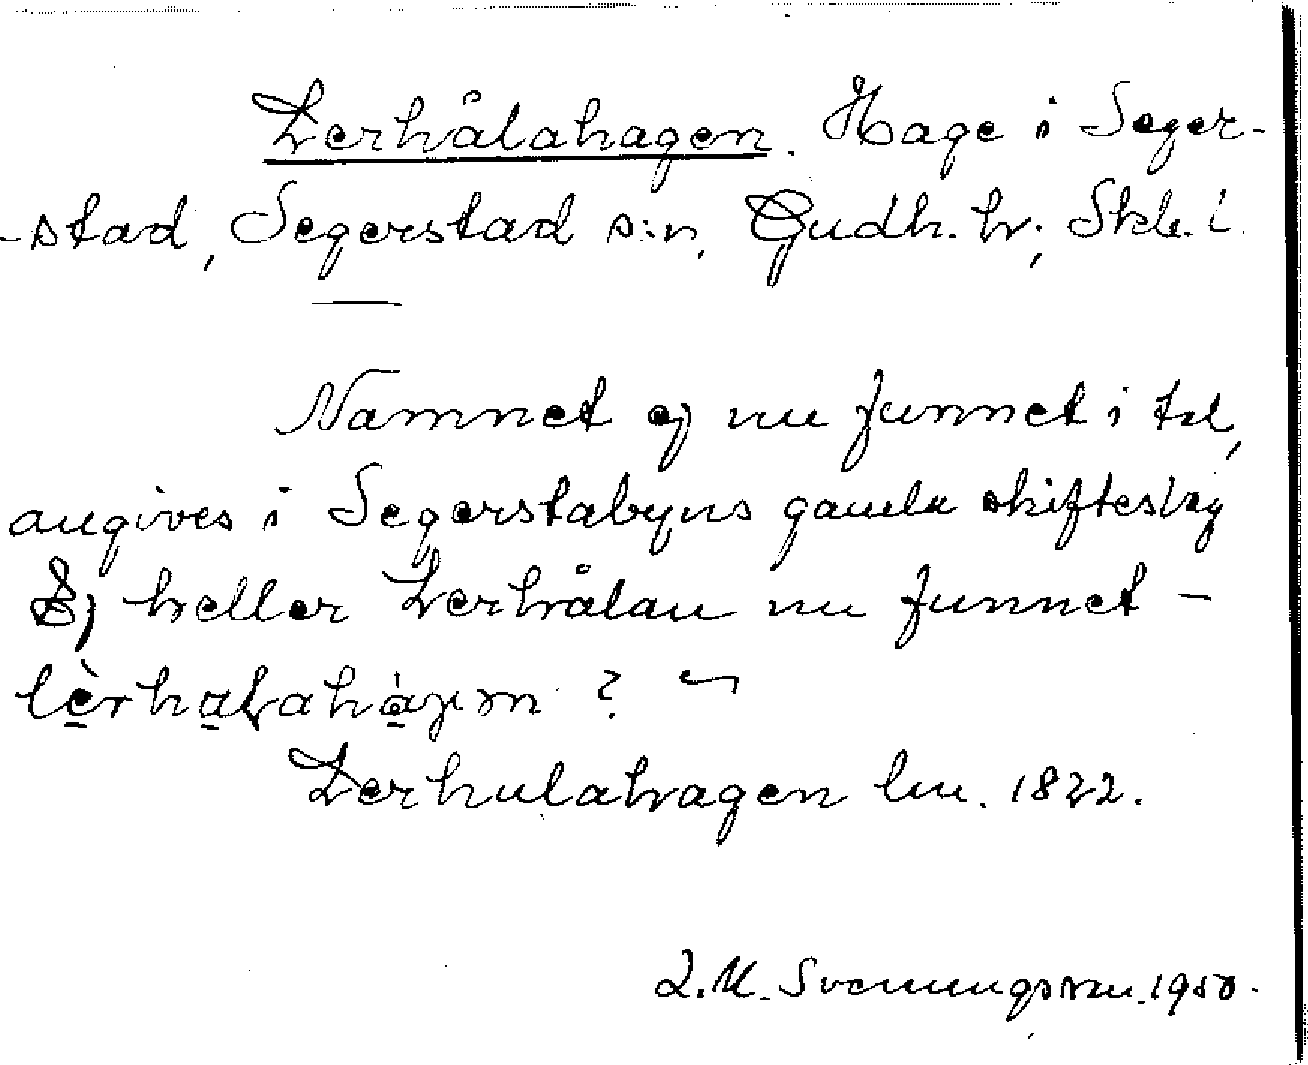 Lerhålahagen. Hage i Seger-
-stad, Segerstad s:n, Gudh. hr, Skb. l.
Namnet ej nu funnet i tal,
angives i Segerstabyns gamla skifteslag
Ej heller Lerhålan nu funnet -
Lerhulahagen lm. 1822.
L.M. Svenungsson. 1950.